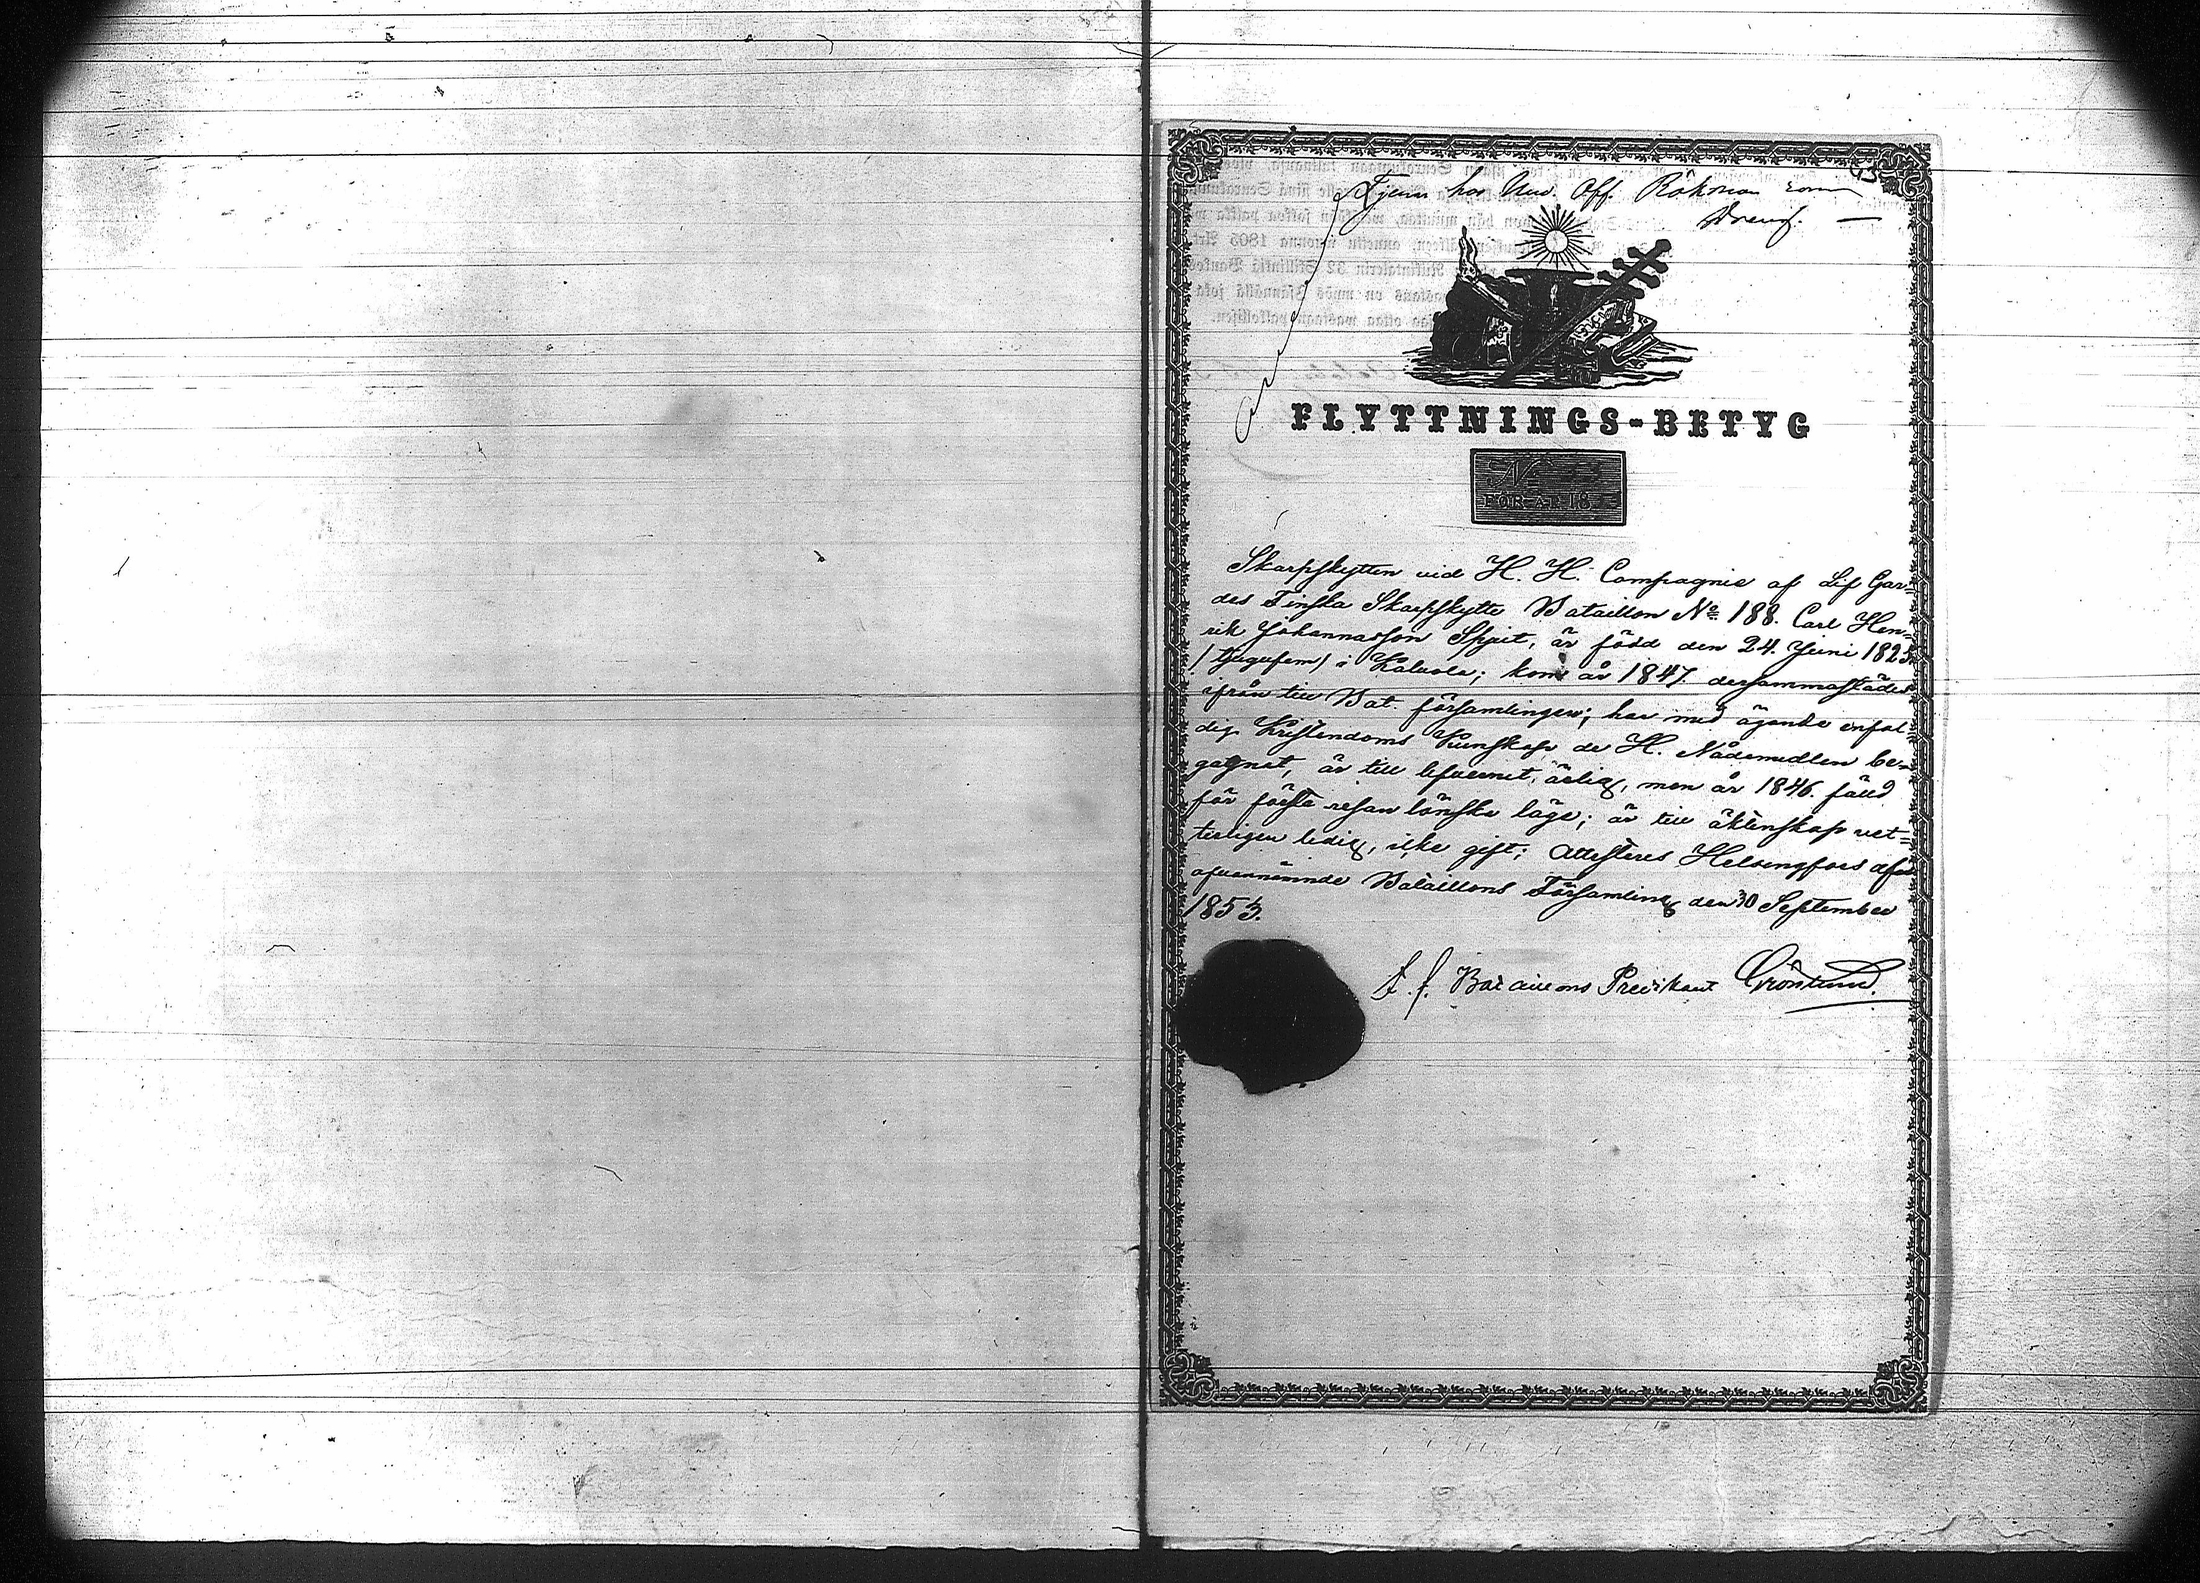 Tjenar hos Und. Off. Rökman som
Dreng. —
FLYTTNINGS-BETYG
N
FÖR ÅR 18
Skarpskytten vid H. H. Compagnie af Lif Gar=
des Finska Skarpskytte Bataillon No 188. Carl Hen=
rik Johannasson Spjut, är född den 24. Juni 1825
/tjugufem/ i Kalvola; kom år 1847. dersammastädes
ifrån till Bat. församlingen; har med ägande enfal
dig Kristendoms Kunskap de H. Nådemedlen be=
gagnat, är till lefvernet ärlig, men år 1846. fäld
för första resan lönska läge; är till äktenskap vet=
terligen ledig, icke gift; Attesteres Helsingfors af
ofvannämnde Bataillons Församling den 30 September
1853.
t. f. Bataillons Predikant Grönlund.